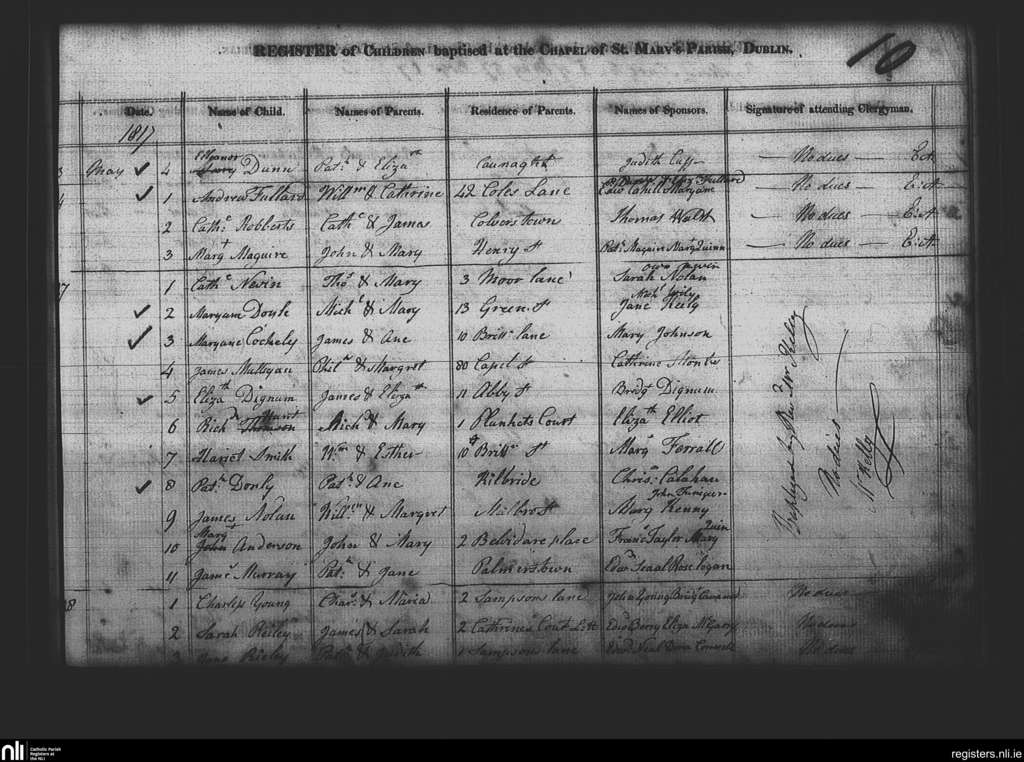 REGISTER of CHILDREN baptised at the CHAPEL of St. MARY'S PARISH, DUBLIN.
10
Date. Name of Child. Names of Parents. Residence of Parents. Names of Sponsors. Signature of attending Clergyman.
1817
Elleanor
3 May 4 Dunn Patk & Eliza th Judith Cuff No dues
4 1 Andrew Fullard Willm & Catherine 42 Coles Lane Edwd Cahill Maryane No dues
2 Cathe Robberts Cathe & James Colverstown Thomas Walsh No dues
3 Margt Maguire John & Mary Henry St Patk Maguire Mary Quinn No dues
7 1 Cathe Nevin Thos & Mary 3 Moor lane Sarah Nolan
2 Maryann Doyle Michl & Mary 13 Green St Jane Reily
3 Maryane Cockely James & Ane 10 Brittn lane Mary Johnson
4 James Mulloyan Phil & Margret 80 Capel St Cathrine
5 Eliza th Dignum James & Eliza th 11 Abby St Bredgt Dignum
6 Richd Thomson Michl & Mary 1 Plunkets Court Eliza th Elliot
7 Hariet Smith Wm & Esther 10 Brittn St Mary Farrall
8 Patk Donly Patk & Ane Kilbride Chrisr Calahan
9 James Nolan Willm & Margret Milbro St Mary Kenny
Mary
10 John Anderson John & Mary 2 Belvidare place Francs Taylor Mary Quin
11 James Murray Patk & Jane Palmerstown Edwd Rose Cogan
Baptized by Revd Mr Kelly
No dues
Mr Kelly
8 1 Charles Young Chars & Maria 2 Sampsons lane John Young No dues
2 Sarah Reiley James & Sarah 2 Cathrines Court Edwd Berry Eliza McGary No dues
3 Reiley Patk & Judith 1 Sampson lane Edwd Neal Dora No dues
nli Catholic Parish
Registers at
the NLI
registers.nli.ie